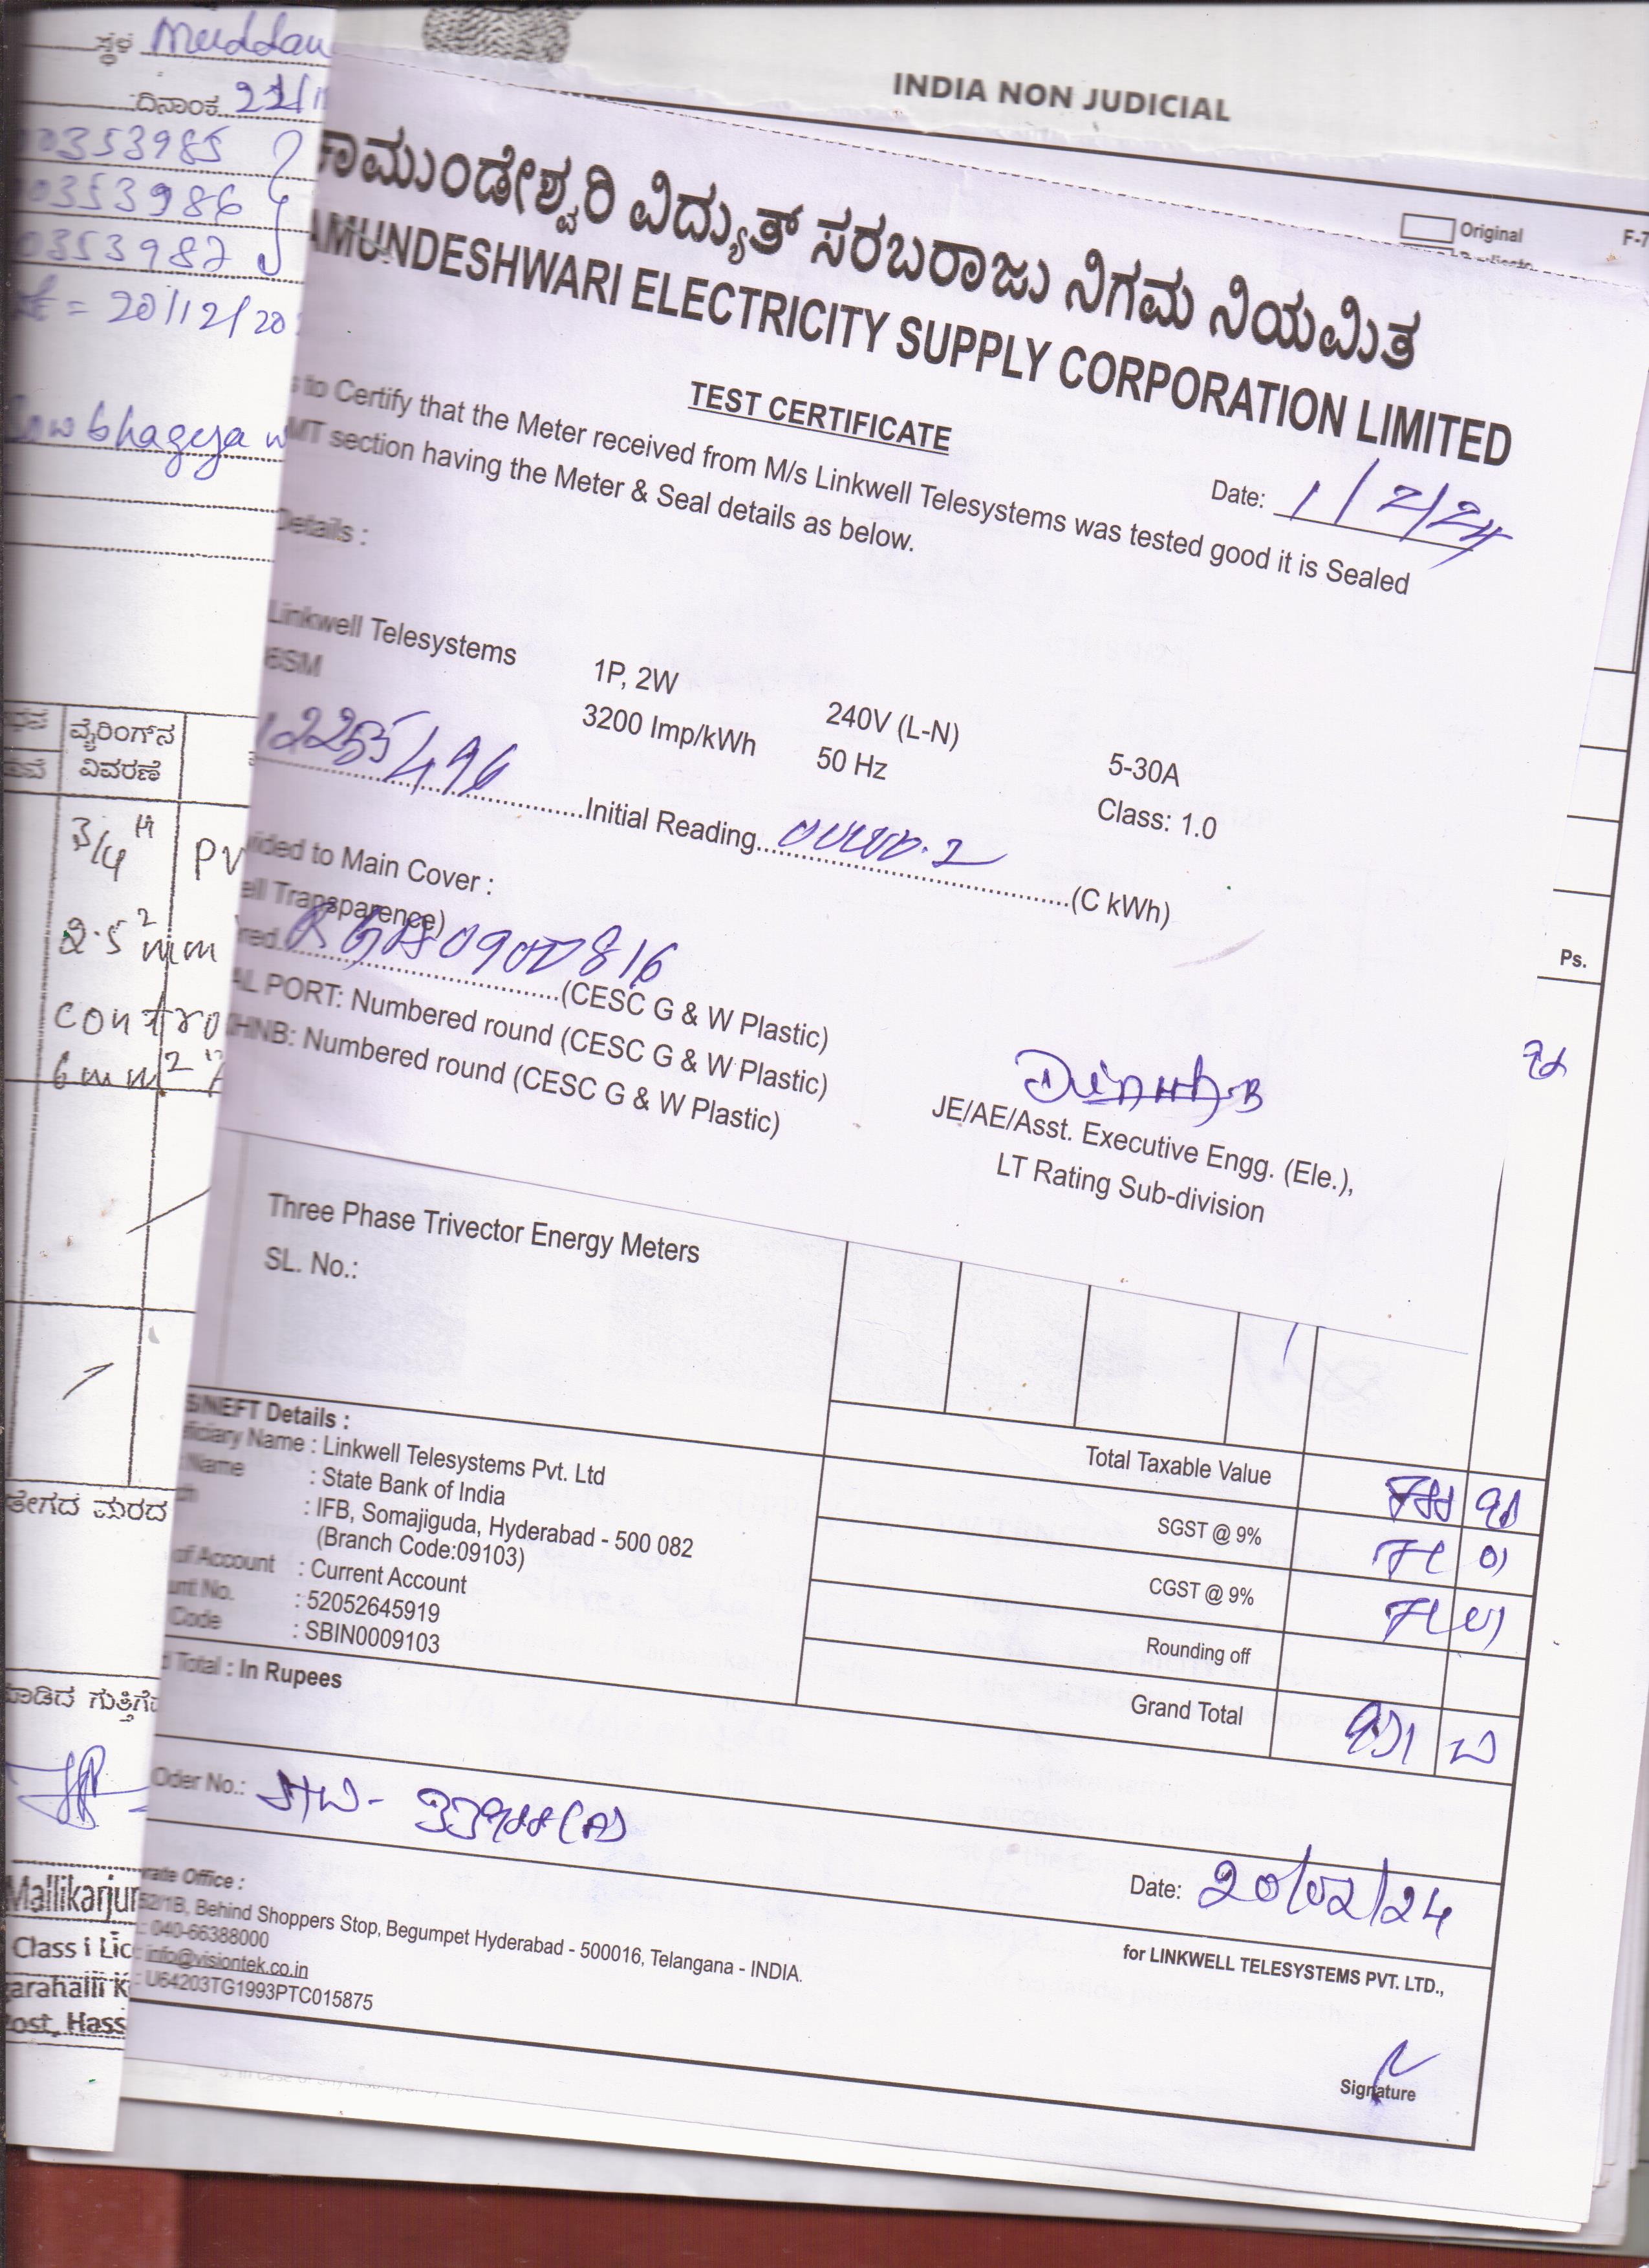 ಸ್ಥಳ Muddan
ದಿನಾಂಕ 22/1
353985
353986
353987
= 20/12/20
Sowbhagya w
ವೈರಿಂಗ್‌ನ
ವಿವರಣೆ
3/4" PV
2.5 mm²
contro
6mm²
INDIA NON JUDICIAL
Original
F-7
ಚಾಮುಂಡೇಶ್ವರಿ ವಿದ್ಯುತ್ ಸರಬರಾಜು ನಿಗಮ ನಿಯಮಿತ
AMUNDESHWARI ELECTRICITY SUPPLY CORPORATION LIMITED
TEST CERTIFICATE
Date: 1/2/24
s to Certify that the Meter received from M/s Linkwell Telesystems was tested good it is Sealed
MT section having the Meter & Seal details as below.
Details :
Linkwell Telesystems 1P, 2W 240V (L-N) 5-30A
6SM 3200 Imp/kWh 50 Hz Class: 1.0
Initial Reading (C kWh)
vided to Main Cover :
ell Transparence)
red (CESC G & W Plastic)
AL PORT: Numbered round (CESC G & W Plastic)
HNB: Numbered round (CESC G & W Plastic)
JE/AE/Asst. Executive Engg. (Ele.),
LT Rating Sub-division
Ps.
Three Phase Trivector Energy Meters
SL. No.:
S/NEFT Details :
ficiary Name : Linkwell Telesystems Pvt. Ltd
Name : State Bank of India
ch : IFB, Somajiguda, Hyderabad - 500 082
(Branch Code:09103)
of Account : Current Account
unt No. : 52052645919
Code : SBIN0009103
Total Taxable Value
SGST @ 9%
CGST @ 9%
Rounding off
Grand Total
d Total : In Rupees
Oder No.:
Date: 20/02/24
rate Office :
52/1B, Behind Shoppers Stop, Begumpet Hyderabad - 500016, Telangana - INDIA.
: 040-66388000
: info@visiontek.co.in
: U64203TG1993PTC015875
for LINKWELL TELESYSTEMS PVT. LTD.,
Signature
Mallikarjun
Class I Lic
arahalli K
ost, Hass